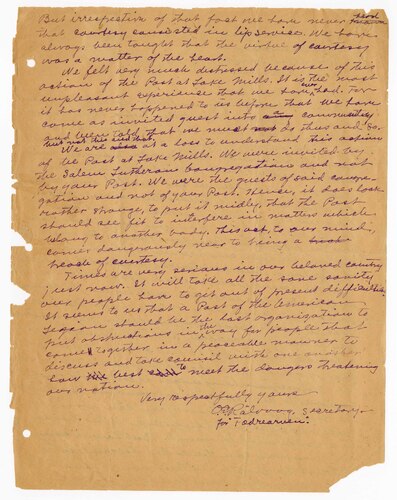 But irrespective of that fact we have never heard
that courtesy consisted in lip service. We have
always been taught that the virtue of courtesy
was a matter of the heart.
We felt very much distressed because of this
action of the Post at Lake Mills. It is the most
unpleasant experience that we have ever had. For
it has never happened to us before that we have
come as invited guest into community
and been told that we must not do thus and so.
We are at a loss to understand this action
of the Post at Lake Mills. We were invited by
the Salem Lutheran Congregation and not
by your Post. We were the guests of said congre-
gation and not of your Post. Hence, it does look
rather strange, to put it mildly, that the Post
should see fit to interfere in matters which
belong to another body. This act, to our mind,
comes dangerously near to being a
breach of courtesy.
Times are very serious in our beloved country
just now. It will take all the sane sanity
our people have to get out of present difficulties.
It seems to us that a Post of the American
Legion should be the last organization to
put obstructions in the way for people that
come together in a peaceable manner to
discuss and take council with one another
how best to meet the dangers threatening
our nation.
Very respectfully yours
Secretary
for